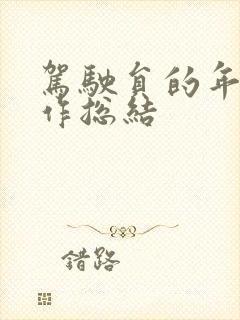 駕駛員的年
作总結
錯路